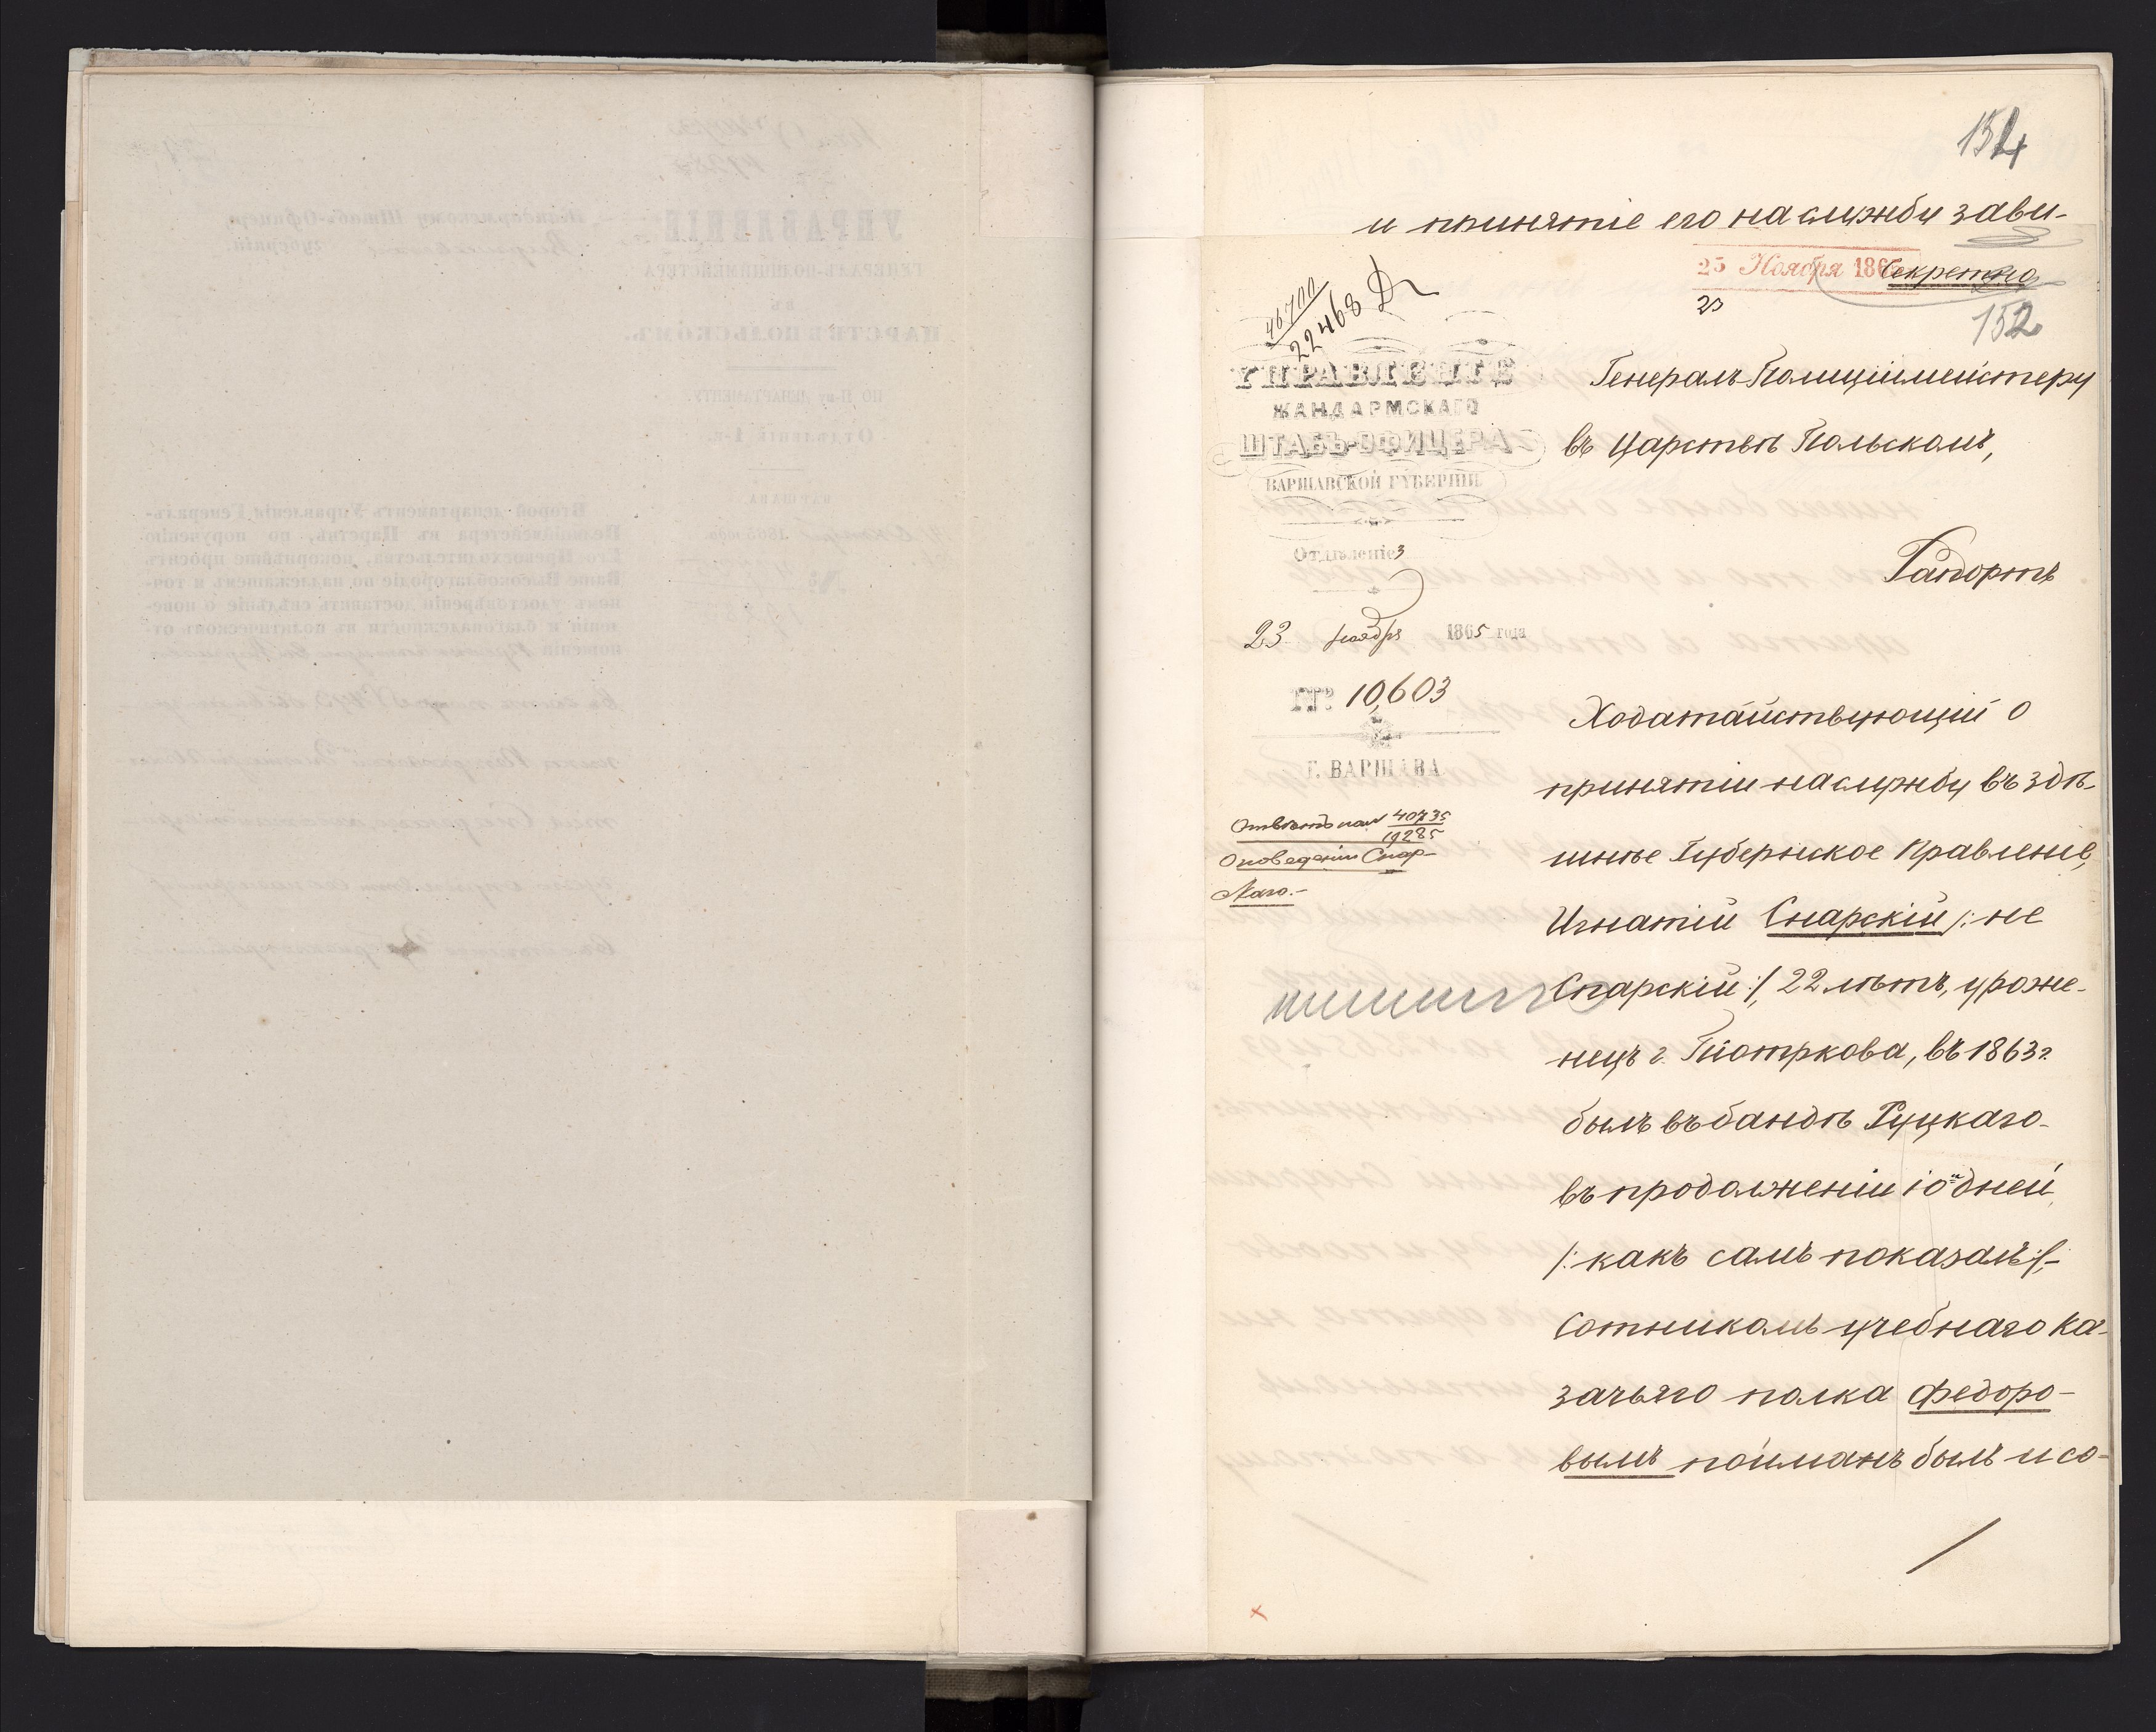 154
и принятіе его на службу зави-
25 Ноября 186
Секретно
23
152
46700
22468
УПРАВЛЕНІЕ
ЖАНДАРМСКАГО
ШТАБЪ-ОФИЦЕРА
ВАРШАВСКОЙ ГУБЕРНІИ
Отдѣленіе 3
23 ноября 1865 года
№ 10,603
Г. ВАРШАВА
Отвѣтъ на № 40735
19285
О поведеніи Снар-
скаго.-
Генералъ-Полиціймейстеру
въ Царствѣ Польскомъ,
Рапортъ
Ходатайствующій о
принятіи на службу въ здѣ-
шнѣе Губернское Правленіе,
Игнатій Снарскій /: не
Спарскій :/, 22 лѣтъ, уроже-
нецъ г. Піотркова, въ 1863 г.
былъ въ бандѣ Руцкаго
въ продолженіи 10и дней,
/: какъ самъ показалъ :/,-
Сотникомъ учебнаго Ка-
зачьяго полка Федоро-
вымъ пойманъ былъ и со-